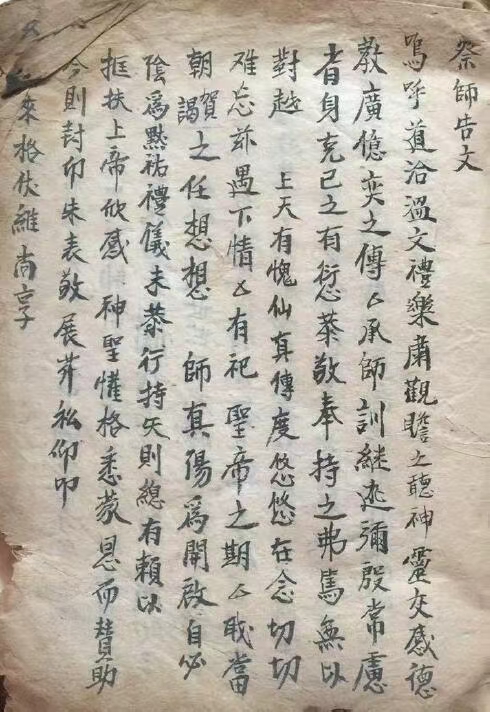 祭師告文
嗚呼道洽溫文禮樂肅觀瞻之聽神靈交感德
教廣億奕之傳厶承師訓継述彌殷常慮
省身克己之有愆恭敬奉持之弗篤無以
對越 上天有愧仙真傳度悠悠在念切切
难忘茲遇下情厶有祀聖帝之期厶戝當
朝賀謁之任想想 師真陽為開啟自必
陰為黙祐禮儀未恭行持失則緫有賴以
框扶上帝欣感 神聖懽格悉蒙恩而賛助
今則封印朱表敬展葬私仰叩
來格伏維尚享